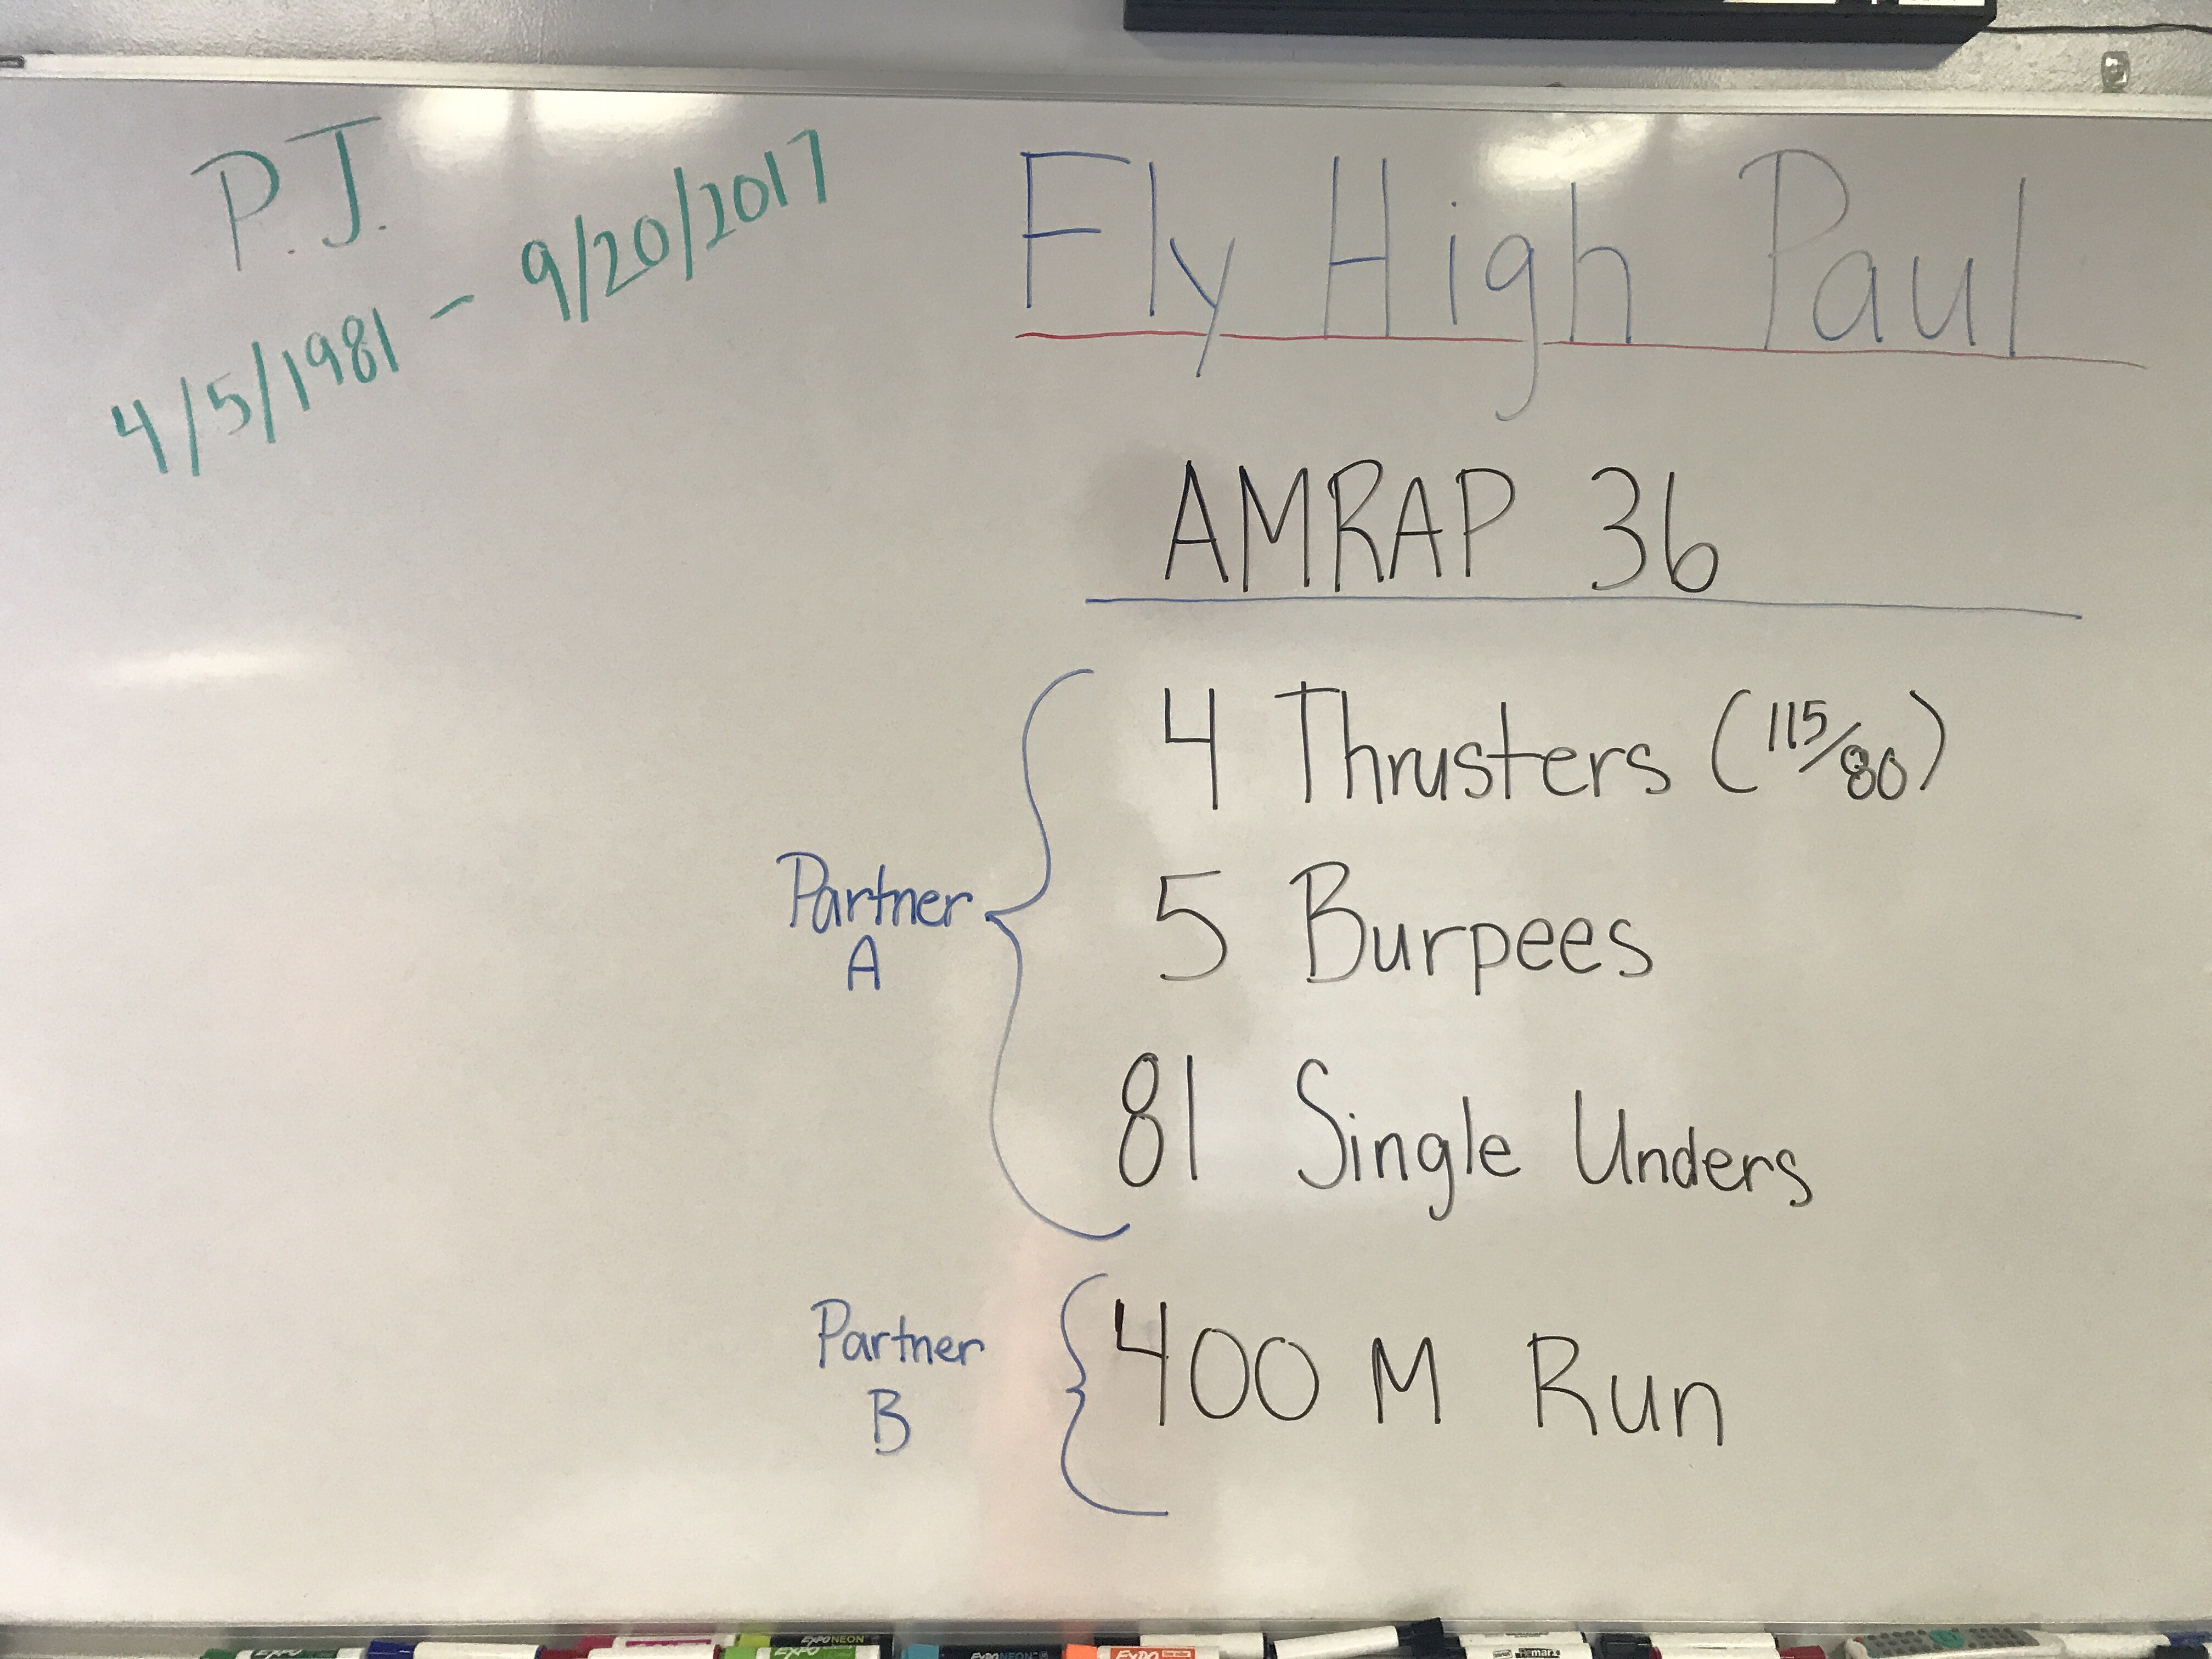 P.J.
4/5/1981 - 9/20/2017
Fly High Paul
AMRAP 36
4 Thrusters (115/80)
5 Burpees
81 Single Unders
Partner
A
400 M Run
Partner
B
EXPO NEON
EXPO
EXPO NEON
EXPO